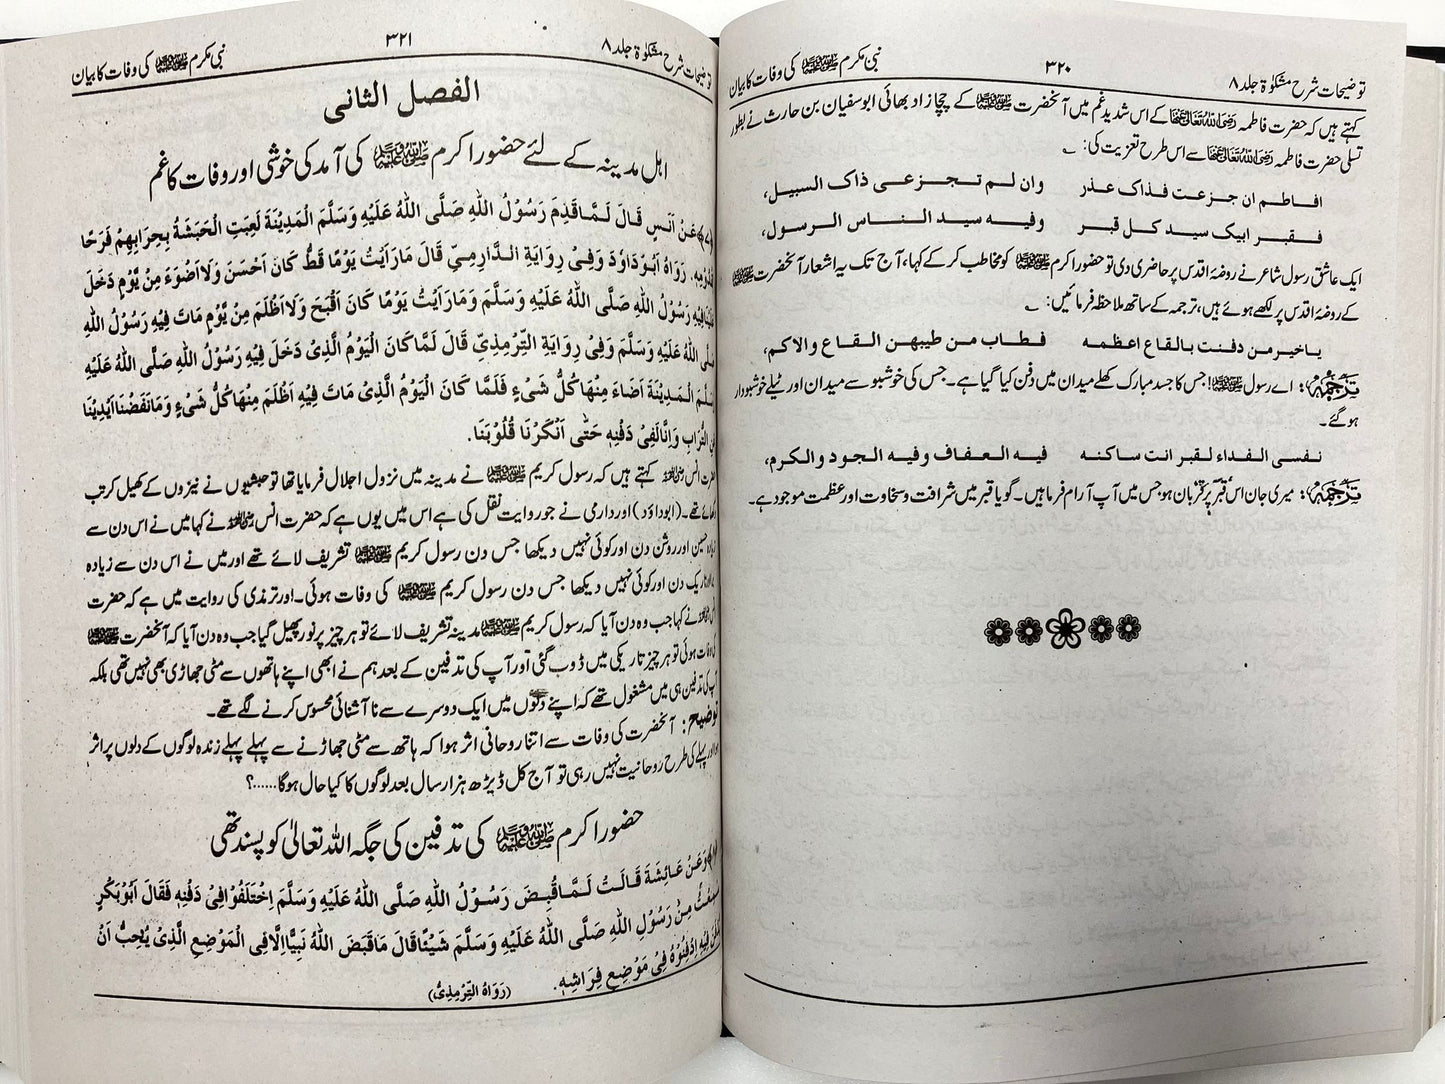 توضیحات شرح مشکوٰۃ جلد ۸ ۳۲۰ نبی مکرم ﷺ کی وفات کا بیان
کہتے ہیں کہ حضرت فاطمہ رضی اللہ تعالیٰ عنہا کے اس شدید غم میں آنحضرت ﷺ کے چچازاد بھائی ابوسفیان بن حارث نے بطور
تسلی حضرت فاطمہ رضی اللہ تعالیٰ عنہا سے اس طرح تعزیت کی:
افاطم ان جزعت فذاک عذر وان لم تجزعی ذاک السبیل،
فقبر ابیک سید کل قبر وفیہ سید الناس الرسول،
ایک عاشق رسول شاعر نے روضۂ اقدس پر حاضری دی تو حضور اکرم ﷺ کو مخاطب کر کے کہا، آج تک یہ اشعار آنحضرت ﷺ
کے روضۂ اقدس پر لکھے ہوئے ہیں، ترجمہ کے ساتھ ملاحظہ فرمائیں:
یاخیر من دفنت بالقاع اعظمہ فطاب من طیبھن القاع والاکم،
ترجمہ: اے رسول ﷺ! جس کا جسد مبارک کھلے میدان میں دفن کیا گیا ہے۔ جس کی خوشبو سے میدان اور ٹیلے خوشبودار
ہو گئے۔
نفسی الفداء لقبر انت ساکنہ فیہ العفاف وفیہ الجود والکرم،
ترجمہ: میری جان اس قبر پر قربان ہو جس میں آپ آرام فرما ہیں۔ گویا قبر میں شرافت و سخاوت اور عظمت موجود ہے۔
توضیحات شرح مشکوٰۃ جلد ۸ ۳۲۱ نبی مکرم ﷺ کی وفات کا بیان
الفصل الثانی
اہل مدینہ کے لئے حضور اکرم ﷺ کی آمد کی خوشی اور وفات کا غم
﴿۷﴾ عَنْ اَنَسٍ قَالَ لَمَّا قَدِمَ رَسُوْلُ اللهِ صَلَّى اللهُ عَلَيْهِ وَسَلَّمَ الْمَدِيْنَةَ لَعِبَتِ الْحَبَشَةُ بِحِرَابِهِمْ فَرَحًا
لِقُدُوْمِهٖ. رَوَاهُ اَبُوْدَاوُدَ وَفِىْ رِوَايَةِ الدَّارِمِيِّ قَالَ مَارَاَيْتُ يَوْمًا قَطُّ كَانَ اَحْسَنَ وَلَا اَضْوَءَ مِنْ يَّوْمٍ دَخَلَ
عَلَيْنَا فِيْهِ رَسُوْلُ اللهِ صَلَّى اللهُ عَلَيْهِ وَسَلَّمَ وَمَارَاَيْتُ يَوْمًا كَانَ اَقْبَحَ وَلَا اَظْلَمَ مِنْ يَّوْمٍ مَاتَ فِيْهِ رَسُوْلُ اللهِ
صَلَّى اللهُ عَلَيْهِ وَسَلَّمَ وَفِىْ رِوَايَةِ التِّرْمِذِيِّ قَالَ لَمَّا كَانَ الْيَوْمُ الَّذِىْ دَخَلَ فِيْهِ رَسُوْلُ اللهِ صَلَّى اللهُ عَلَيْهِ
وَسَلَّمَ الْمَدِيْنَةَ اَضَاءَ مِنْهَا كُلُّ شَىْءٍ فَلَمَّا كَانَ الْيَوْمُ الَّذِىْ مَاتَ فِيْهِ اَظْلَمَ مِنْهَا كُلُّ شَىْءٍ وَمَا نَفَضْنَا اَيْدِيْنَا
عَنِ التُّرَابِ وَاِنَّا لَفِىْ دَفْنِهٖ حَتّٰى اَنْكَرْنَا قُلُوْبَنَا.
حضرت انس رضی اللہ عنہ کہتے ہیں کہ رسول کریم ﷺ نے مدینہ میں نزول اجلال فرمایا تھا تو حبشیوں نے نیزوں کے کھیل کرتب
دکھائے تھے۔ (ابوداؤد) اور دارمی نے جو روایت نقل کی ہے اس میں یوں ہے کہ حضرت انس رضی اللہ عنہ نے کہا میں نے اس دن سے
زیادہ حسین اور روشن دن اور کوئی نہیں دیکھا جس دن رسول کریم ﷺ تشریف لائے تھے اور میں نے اس دن سے زیادہ
اور تاریک دن اور کوئی نہیں دیکھا جس دن رسول کریم ﷺ کی وفات ہوئی۔ اور ترمذی کی روایت میں ہے کہ حضرت
نے کہا جب وہ دن آیا کہ رسول کریم ﷺ مدینہ تشریف لائے تو ہر چیز پر نور پھیل گیا جب وہ دن آیا کہ آنحضرت ﷺ
کی وفات ہوئی تو ہر چیز تاریکی میں ڈوب گئی اور آپ کی تدفین کے بعد ہم نے ابھی اپنے ہاتھوں سے مٹی جھاڑی بھی نہیں تھی بلکہ
آپ کی تدفین ہی میں مشغول تھے کہ اپنے دلوں میں ایک دوسرے سے ناآشنائی محسوس کرنے لگے تھے۔
توضیح: آنحضرت کی وفات سے اتنا روحانی اثر ہوا کہ ہاتھ سے مٹی جھاڑنے سے پہلے پہلے زندہ لوگوں کے دلوں پر اثر
ہوا اور پہلے کی طرح روحانیت نہیں رہی تو آج کل ڈیڑھ ہزار سال بعد لوگوں کا کیا حال ہوگا......؟
حضور اکرم ﷺ کی تدفین کی جگہ اللہ تعالیٰ کو پسند تھی
وَعَنْ عَائِشَةَ قَالَتْ لَمَّا قُبِضَ رَسُوْلُ اللهِ صَلَّى اللهُ عَلَيْهِ وَسَلَّمَ اِخْتَلَفُوْا فِىْ دَفْنِهٖ فَقَالَ اَبُوْبَكْرٍ
سَمِعْتُ مِنْ رَسُوْلِ اللهِ صَلَّى اللهُ عَلَيْهِ وَسَلَّمَ شَيْئًا قَالَ مَا قَبَضَ اللهُ نَبِيًّا اِلَّا فِى الْمَوْضِعِ الَّذِىْ يُحِبُّ اَنْ
يُّدْفَنَ فِيْهِ اِدْفِنُوْهُ فِىْ مَوْضِعِ فِرَاشِهٖ. (رَوَاهُ التِّرْمِذِىُّ)